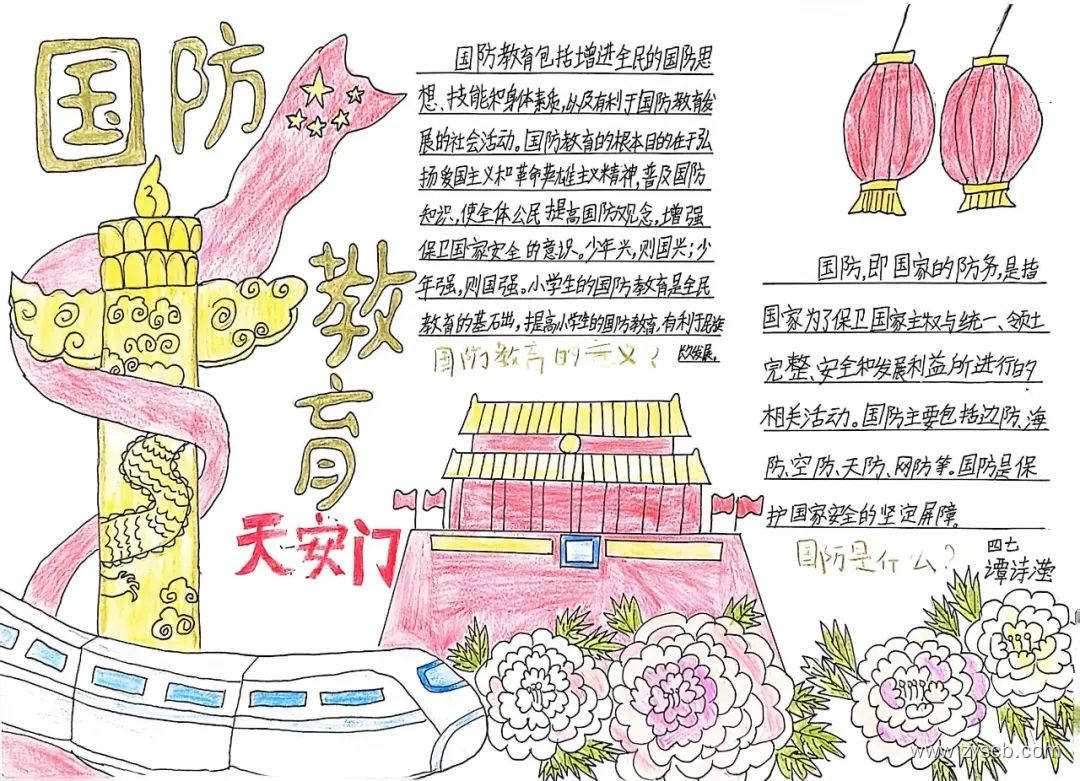 国防
教育
国防教育包括增进全民的国防思
想、技能和身体素质,以及有利于国防教育发
展的社会活动。国防教育的根本目的在于弘
扬爱国主义和革命英雄主义精神,普及国防
知识,使全体公民提高国防观念,增强
保卫国家安全的意识。少年兴,则国兴;少
年强,则国强。小学生的国防教育是全民
教育的基石出,提高小学生的国防教育,有利于民族
的发展。
国防教育的意义?
天安门
国防,即国家的防务,是指
国家为了保卫国家主权与统一、领土
完整、安全和发展利益所进行的
相关活动。国防主要包括边防、海
防、空防、天防、网防等。国防是保
护国家安全的坚定屏障。
国防是什么?
四七
谭诗滢